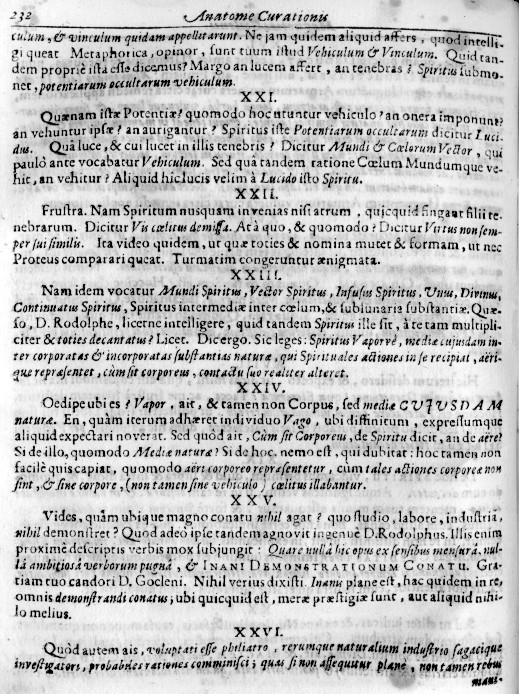 232 Anatome Curationis
culum, & vinculum quidam appellitarunt. Ne jam quidem aliquid affers, quod intelli-
gi queat Metaphorica, opinor, sunt tuum istud Vehiculum & Vinculum. Quid tan-
dem propriè ista esse dicemus? Margo an lucem affert, an tenebras? Spiritus submo-
net, potentiarum occultarum vehiculum.
XXI.
Quænam istæ Potentiæ? quomodo hoc utuntur vehiculo? an onera imponunt?
an vehuntur ipsæ? an aurigantur? Spiritus iste Potentiarum occultarum dicitur Luci-
dus. Quâ luce, & cui lucet in illis tenebris? Dicitur Mundi & Cœlorum Vector, qui
paulò ante vocabatur Vehiculum. Sed quâ tandem ratione Cœlum Mundumque ve-
hit, an vehitur? Aliquid hic lucis velim à Lucido isto Spiritu.
XXII.
Frustra. Nam Spiritum nusquam invenias nisi atrum, quicquid fingant filii te-
nebrarum. Dicitur Vis cœlitus demissa. At à quo, & quomodo? Dicitur Virtus non sem-
per sui similis. Ita video quidem, ut quæ toties & nomina mutet & formam, ut nec
Proteus comparari queat. Turmatim congeruntur ænigmata.
XXIII.
Nam idem vocatur Mundi Spiritus, Vector Spiritus, Infusus Spiritus, Unus, Divinus,
Continuatus Spiritus, Spiritus intermediæ inter cœlum, & sublunaria substantiæ. Quæ-
so, D. Rodolphe, licerne intelligere, quid tandem Spiritus ille sit, à te tam multipli-
citer & toties decantatus? Licet. Dic ergo. Sic leges: Spiritus Vapor vè, mediæ cujusdam in-
ter corporatas & incorporatas substantias naturæ, qui Spirituales actiones in se recipiat, aëri-
que repræsentet, cùm sit corporeus, contactu suo realiter alteret.
XXIV.
Oedipe ubi es? Vapor, ait, & tamen non Corpus, sed mediæ CUJUSDAM
naturæ. En, quàm iterum adhæret individuo Vago, ubi diffinitum, expressumque
aliquid expectari noverat. Sed quòd ait, Cùm sit Corporeus, de Spiritu dicit, an de aëre?
Si de illo, quomodo Mediæ naturæ? Si de hoc. nemo est, qui dubitat: hoc tamen non
facilè quis capiat, quomodo aëri corporeo repræsentetur, cum tales actiones corporeæ non
sint, & sine corpore, (non tamen sine vehiculo) cœlitus illabantur.
XXV.
Vides, quàm ubique magno conatu nihil agat? quo studio, labore, industriâ,
nihil demonstret? Quod adeò ipse tandem agnovit ingenuè D. Rodolphus. Illis enim
proximè descriptis verbis mox subjungit: Quare nulla hic opus ex sensibus mensurâ, nul-
lâ ambitiosâ verborum pugnâ, & INANI DEMONSTRATIONUM CONATU. Gra-
tiam tuo candori D. Gocleni. Nihil verius dixisti. Inanis planè est, hac quidem in re,
omnis demonstrandi conatus; ubi quicquid est, meræ præstigiæ sunt, aut aliquid nihi-
lo melius.
XXVI.
Quòd autem ais, voluptati esse philiatro, rerumque naturalium industrio sagacique
investigatori, probabiles rationes comminisci; quas si non assequitur planè, non tamen rebus
mani-